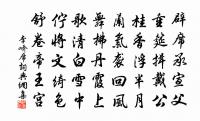 辟席承宣父
重筵揖戴公
桂香浮半月
蘭氣襲回風
舞拂丹霞上
歌清白雪中
佇將文綺色
舒卷帝王宮
李嶠席詞典網集